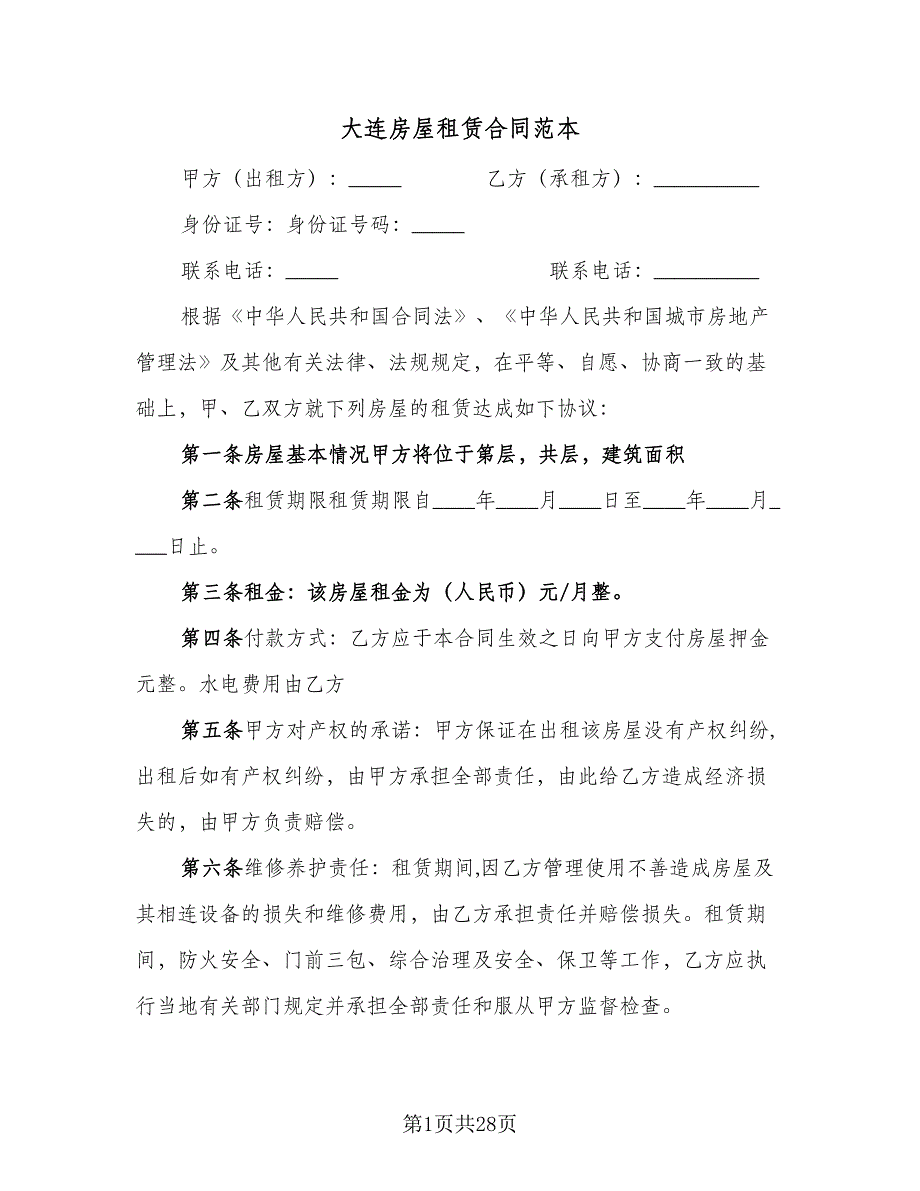 大连房屋租赁合同范本
甲方（出租方）：_____ 乙方（承租方）：__________
身份证号：身份证号码：_____
联系电话：_____ 联系电话：__________
根据《中华人民共和国合同法》、《中华人民共和国城市房地产
管理法》及其他有关法律、法规规定，在平等、自愿、协商一致的基
础上，甲、乙双方就下列房屋的租赁达成如下协议：
第一条房屋基本情况甲方将位于第层，共层，建筑面积
第二条租赁期限租赁期限自____年____月____日至____年____月_
___日止。
第三条租金：该房屋租金为（人民币）元/月整。
第四条付款方式：乙方应于本合同生效之日向甲方支付房屋押金
元整。水电费用由乙方
第五条甲方对产权的承诺：甲方保证在出租该房屋没有产权纠纷，
出租后如有产权纠纷，由甲方承担全部责任，由此给乙方造成经济损
失的，由甲方负责赔偿。
第六条维修养护责任：租赁期间,因乙方管理使用不善造成房屋及
其相连设备的损失和维修费用，由乙方承担责任并赔偿损失。租赁期
间，防火安全、门前三包、综合治理及安全、保卫等工作，乙方应执
行当地有关部门规定并承担全部责任和服从甲方监督检查。
第1页共28页